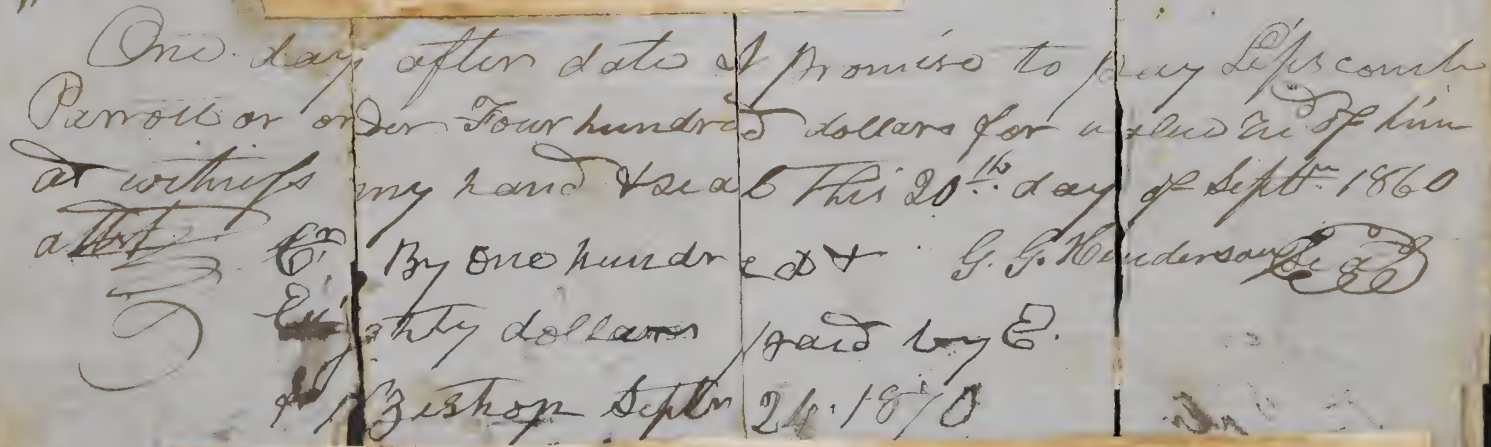 One day after date I promise to pay Lipscomb
Parrott or order Four hundred dollars for value recd of him
as witness my hand & seal This 20th day of Septr 1860
attest G. G. Henderson Seal
Cr By One hundred &
Eighty dollars paid by E.
Bishop Septr 24. 1870